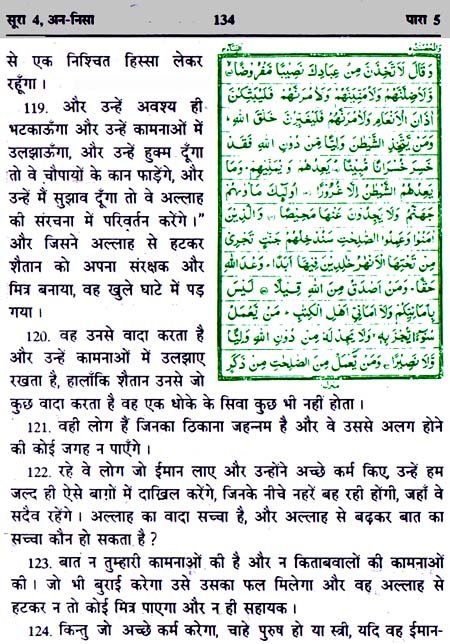 सूरा 4, अन-निसा 134 पारा 5
से एक निश्चित हिस्सा लेकर
रहूँगा ।
119. और उन्हें अवश्य ही
भटकाऊँगा और उन्हें कामनाओं में
उलझाऊँगा, और उन्हें हुक्म दूँगा
तो वे चौपायों के कान फाड़ेंगे, और
उन्हें मैं सुझाव दूँगा तो वे अल्लाह
की संरचना में परिवर्तन करेंगे ।”
और जिसने अल्लाह से हटकर
शैतान को अपना संरक्षक और
मित्र बनाया, वह खुले घाटे में पड़
गया ।
120. वह उनसे वादा करता है
और उन्हें कामनाओं में उलझाए
रखता है, हालाँकि शैतान उनसे जो
وَقَالَ لَاَتَّخِذَنَّ مِنْ عِبَادِكَ نَصِيْبًا مَّفْرُوْضًا
وَّلَاُضِلَّنَّهُمْ وَلَاُمَنِّيَنَّهُمْ وَلَاٰمُرَنَّهُمْ فَلَيُبَتِّكُنَّ
اٰذَانَ الْاَنْعَامِ وَلَاٰمُرَنَّهُمْ فَلَيُغَيِّرُنَّ خَلْقَ اللهِ
وَمَنْ يَّتَّخِذِ الشَّيْطٰنَ وَلِيًّا مِّنْ دُوْنِ اللهِ فَقَدْ
خَسِرَ خُسْرَانًا مُّبِيْنًا يَعِدُهُمْ وَيُمَنِّيْهِمْ وَمَا
يَعِدُهُمُ الشَّيْطٰنُ اِلَّا غُرُوْرًا اُولٰٓئِكَ مَاْوٰىهُمْ
جَهَنَّمُ وَلَا يَجِدُوْنَ عَنْهَا مَحِيْصًا وَالَّذِيْنَ
اٰمَنُوْا وَعَمِلُوا الصّٰلِحٰتِ سَنُدْخِلُهُمْ جَنّٰتٍ تَجْرِيْ
مِنْ تَحْتِهَا الْاَنْهٰرُ خٰلِدِيْنَ فِيْهَا اَبَدًا وَعْدَ اللهِ
حَقًّا وَمَنْ اَصْدَقُ مِنَ اللهِ قِيْلًا لَيْسَ
بِاَمَانِيِّكُمْ وَلَا اَمَانِيِّ اَهْلِ الْكِتٰبِ مَنْ يَّعْمَلْ
سُوْٓءًا يُّجْزَ بِهٖ وَلَا يَجِدْ لَهٗ مِنْ دُوْنِ اللهِ وَلِيًّا
وَّلَا نَصِيْرًا وَمَنْ يَّعْمَلْ مِنَ الصّٰلِحٰتِ مِنْ ذَكَرٍ
कुछ वादा करता है वह एक धोके के सिवा कुछ भी नहीं होता ।
121. वही लोग हैं जिनका ठिकाना जहन्नम है और वे उससे अलग होने
की कोई जगह न पाएँगे ।
122. रहे वे लोग जो ईमान लाए और उन्होंने अच्छे कर्म किए, उन्हें हम
जल्द ही ऐसे बाग़ों में दाख़िल करेंगे, जिनके नीचे नहरें बह रही होंगी, जहाँ वे
सदैव रहेंगे । अल्लाह का वादा सच्चा है, और अल्लाह से बढ़कर बात का
सच्चा कौन हो सकता है ?
123. बात न तुम्हारी कामनाओं की है और न किताबवालों की कामनाओं
की । जो भी बुराई करेगा उसे उसका फल मिलेगा और वह अल्लाह से
हटकर न तो कोई मित्र पाएगा और न ही सहायक ।
124. किन्तु जो अच्छे कर्म करेगा, चाहे पुरुष हो या स्त्री, यदि वह ईमान-